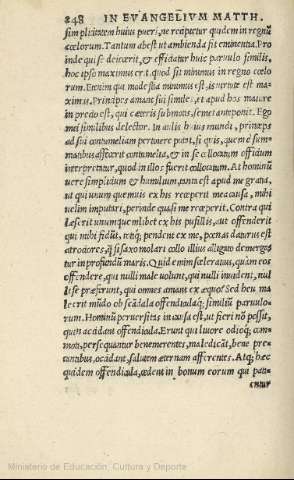 248 IN EVANGELIVM MATTH.
simplicitatem huius pueri, ne recipietur quidem in regnũ
cœlorum. Tantum abest ut ambienda sit eminentia. Pro
inde qui se deiecerit, & effecerit huic paruulo similẽ,
hoc ipso maximus erit, quod sit minimus in regno cœlo
rum. Etenim qui modestia minimus est, is uirtute est ma-
ximus. Princeps amat sui similes, et apud hos maiore
in precio est, qui cæteris submotis semet anteponit. Ego
mei similibus delector. In aulis huius mundi, princeps
ad sui contumeliam pertinere putat, si quis, quem è sum-
matibus affecerit contumelia, & in se collocatum officium
interpretatur, quod in illos fuerit collocatum. At hominũ
uere simplicium & humilium tanta est apud me gratia,
ut qui unum quemuis ex his receperit mea causa, mihi
uelim imputari, perinde quasi me receperit. Contra qui
læserit unum quemlibet ex his pusillis, aut offenderit
qui mihi fidũt, nihilq; pendent ex me, pœnas daturus est
atrociores, q̃ si saxo molari collo illius alligato demerge
tur in profundũ maris. Quid enim sceleratius, quàm eos
offendere, qui nulli male uolunt, qui nulli inuident, nul
li se præferunt, qui omnes amant ex æquo? Sed heu ma
le erit mũdo ob scãdala offendiculaq; similiũ paruulo-
rum. Hominũ peruersitas in causa est, ut fieri nõ possit,
quin accidant offendicula. Erunt qui liuore odioq; cani-
no, persequantur benemerentes, maledicãt, bene pre-
cantibus, occidant, salutem æternam afferentes. Atq; hæc
quidem offendicula, cedent in bonum eorum qui pati-
entur
Ministerio de Educación, Cultura y Deporte